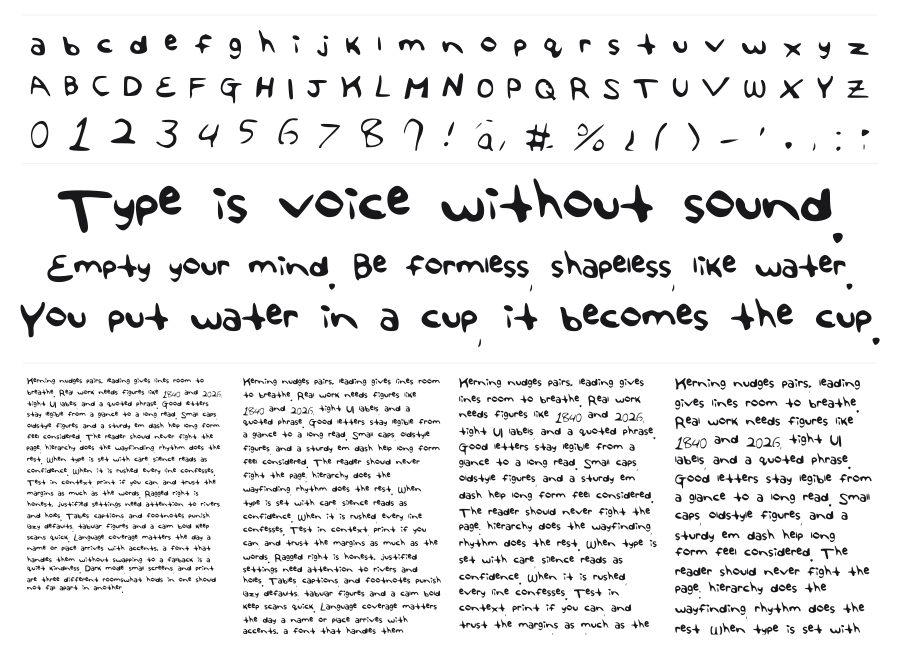 a b c d e f g h i j k l m n o p q r s t u v w x y z
A B C D E F G H I J K L M N O P Q R S T U V W X Y Z
0 1 2 3 4 5 6 7 8 9 ! @ # % ¿ ( ) – ' . , : ;
Type is voice without sound.
Empty your mind. Be formless, shapeless, like water.
You put water in a cup, it becomes the cup.
Kerning nudges pairs, leading gives lines room to
breathe. Real work needs figures like 1840 and 2026,
tight UI labels, and a quoted phrase. Good letters
stay legible from a glance to a long read. Small caps,
oldstyle figures, and a sturdy em dash help long form
feel considered. The reader should never fight the
page, hierarchy does the wayfinding, rhythm does the
rest. When type is set with care, silence reads as
confidence. When it is rushed, every line confesses.
Test in context, print if you can, and trust the
margins as much as the words. Ragged right is
honest, justified settings need attention to rivers
and holes. Tables, captions, and footnotes punish
lazy defaults, tabular figures and a calm bold keep
scans quick. Language coverage matters the day a
name or place arrives with accents, a font that
handles them without swapping to a fallback is a
quiet kindness. Dark mode, small screens, and print
are three different rooms, what holds in one should
not fall apart in another.
Kerning nudges pairs, leading gives lines room
to breathe. Real work needs figures like
1840 and 2026, tight UI labels, and a
quoted phrase. Good letters stay legible from
a glance to a long read. Small caps, oldstyle
figures, and a sturdy em dash help long form
feel considered. The reader should never
fight the page, hierarchy does the
wayfinding, rhythm does the rest. When
type is set with care, silence reads as
confidence. When it is rushed, every line
confesses. Test in context, print if you
can, and trust the margins as much as the
words. Ragged right is honest, justified
settings need attention to rivers and
holes. Tables, captions, and footnotes punish
lazy defaults, tabular figures and a calm bold
keep scans quick. Language coverage matters
the day a name or place arrives with
accents, a font that handles them
Kerning nudges pairs, leading gives
lines room to breathe. Real work
needs figures like 1840 and 2026,
tight UI labels, and a quoted phrase.
Good letters stay legible from a
glance to a long read. Small caps,
oldstyle figures, and a sturdy em
dash help long form feel considered.
The reader should never fight the
page, hierarchy does the wayfinding,
rhythm does the rest. When type is
set with care, silence reads as
confidence. When it is rushed,
every line confesses. Test in
context, print if you can, and
trust the margins as much as the
Kerning nudges pairs, leading
gives lines room to breathe.
Real work needs figures like
1840 and 2026, tight UI
labels, and a quoted phrase.
Good letters stay legible from
a glance to a long read. Small
caps, oldstyle figures, and a
sturdy em dash help long
form feel considered. The
reader should never fight the
page, hierarchy does the
wayfinding, rhythm does the
rest. When type is set with